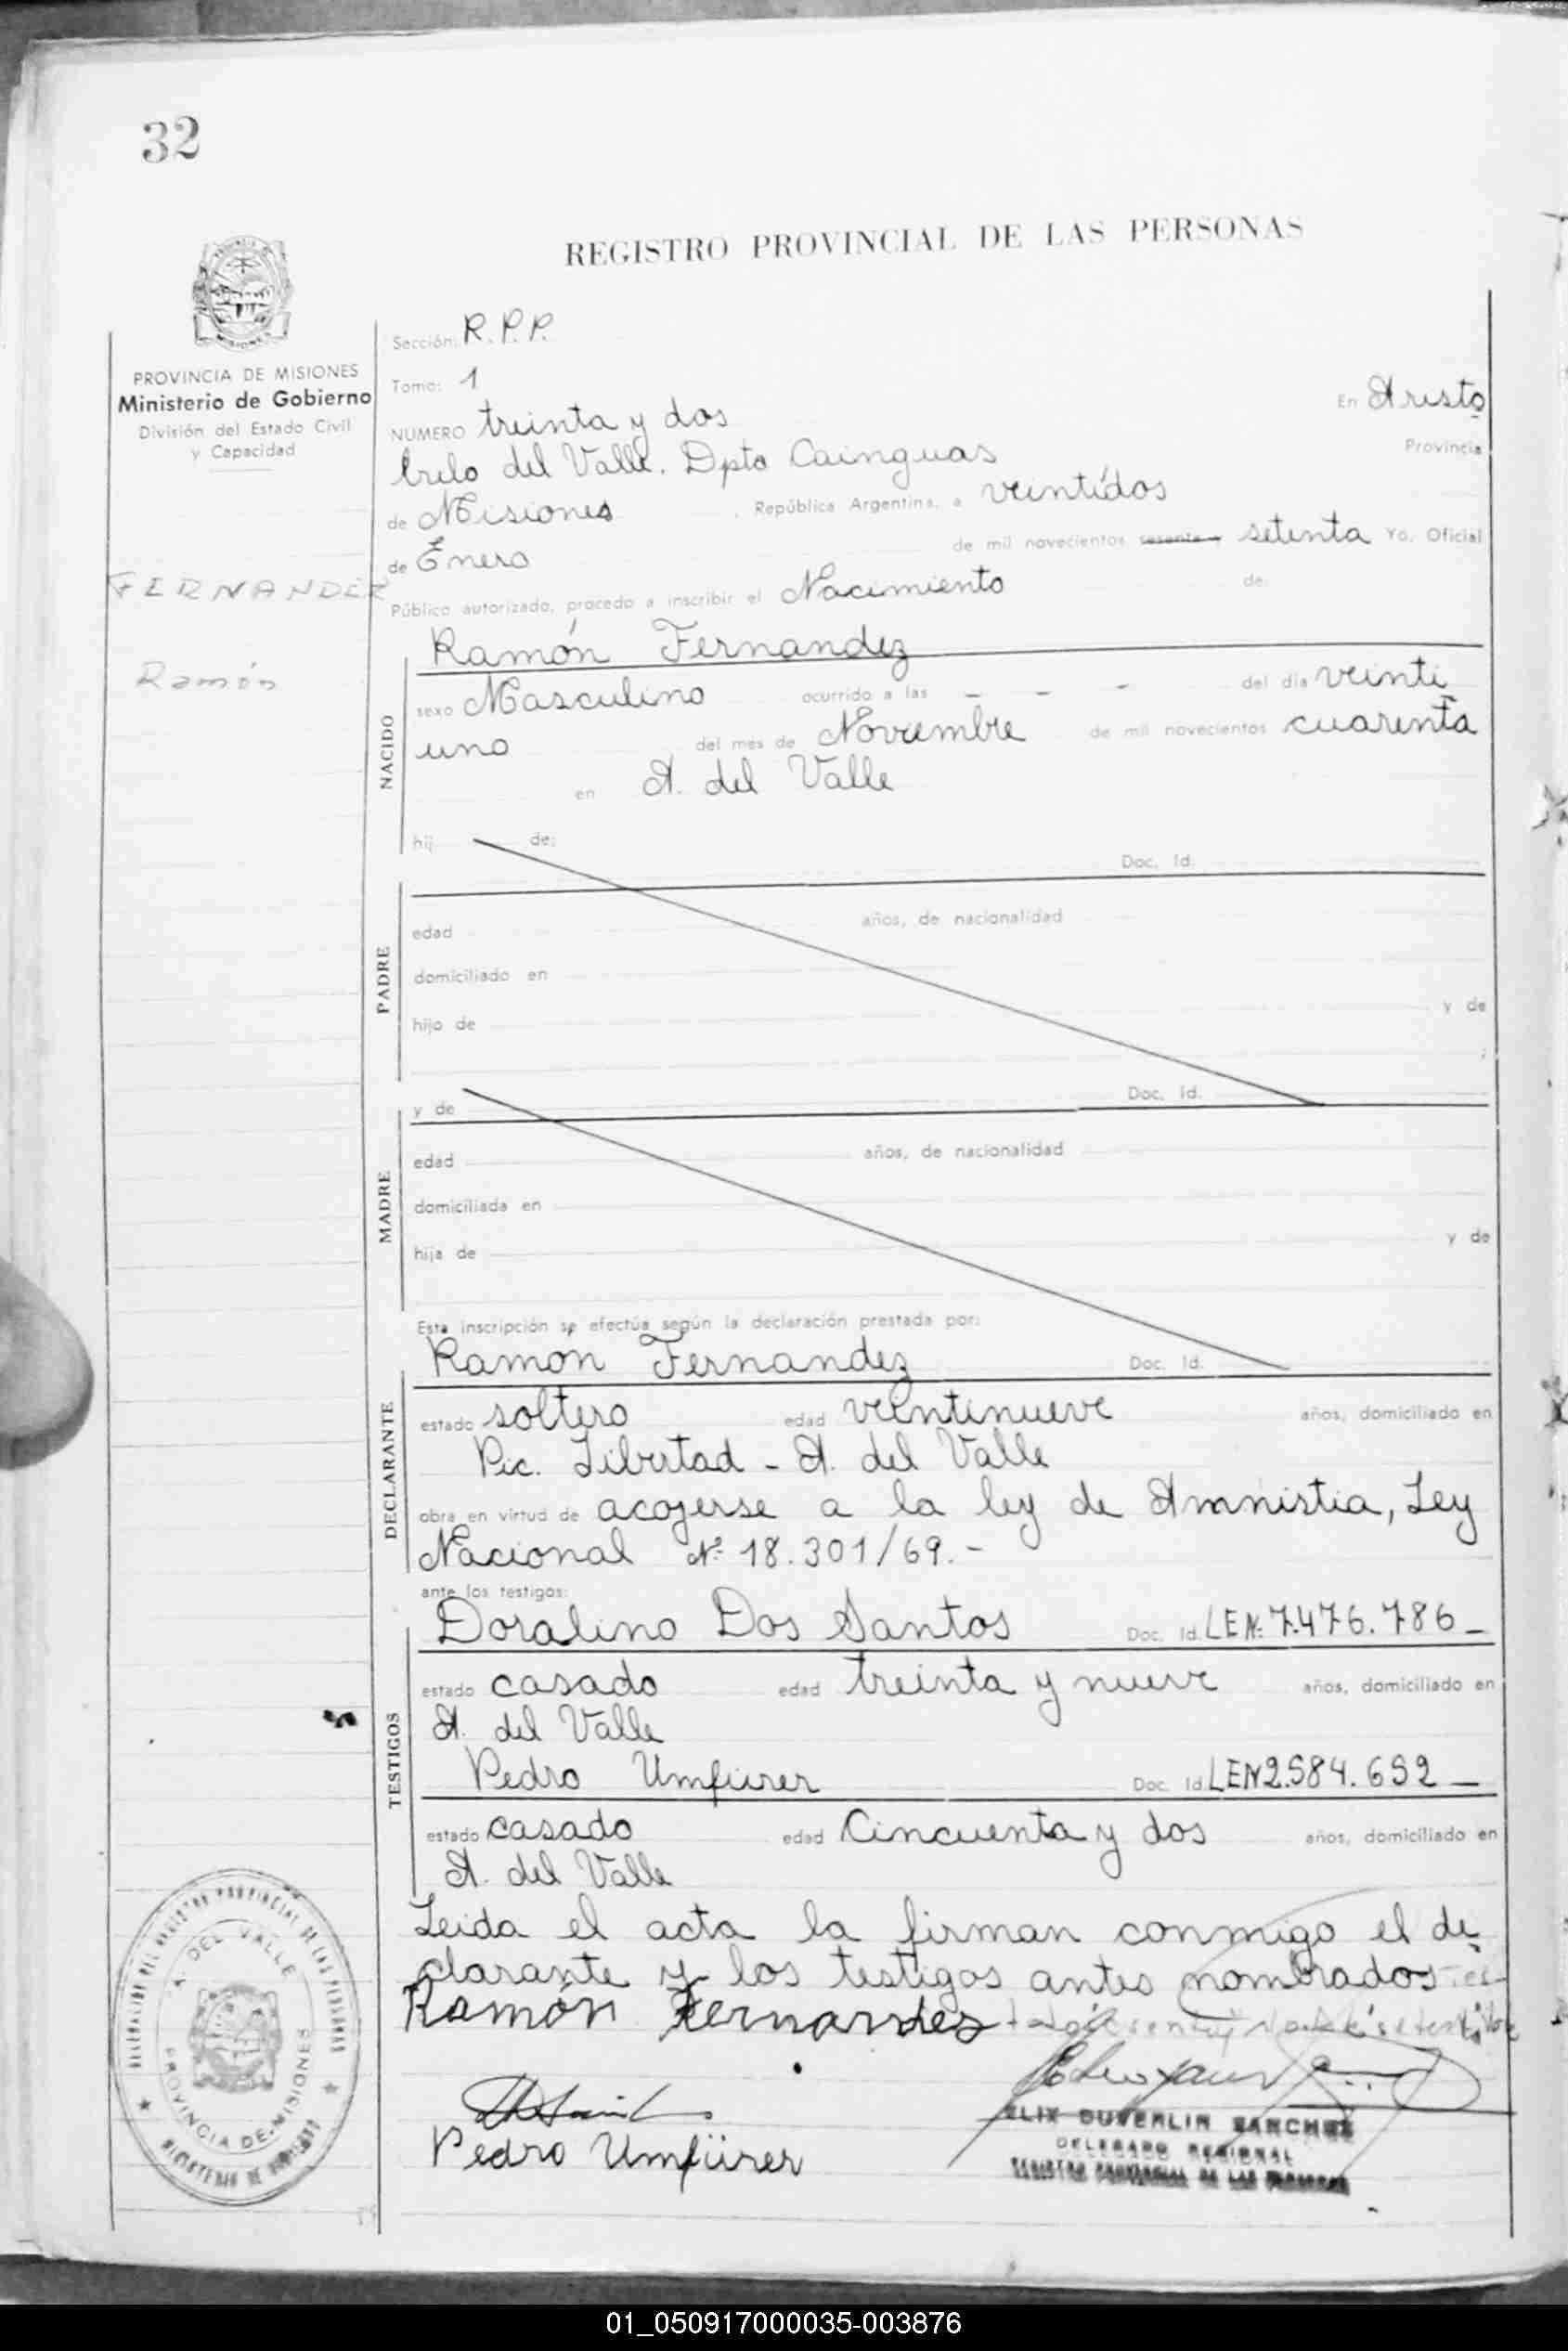 32
REGISTRO PROVINCIAL DE LAS PERSONAS
PROVINCIA DE MISIONES
Ministerio de Gobierno
División del Estado Civil
y Capacidad
FERNANDEZ
Ramón
Sección: R.P.P.
Tomo: 1
En Aristo
NUMERO treinta y dos
Provincia
bulo del Valle. Dpto Cainguas
de Misiones, República Argentina, a veintidos
de Enero de mil novecientos sesenta y setenta Yo, Oficial
Público autorizado, procedo a inscribir el Nacimiento de
Ramón Fernandez
NACIDO
sexo Masculino ocurrido a las - - - del dia veinti
uno del mes de Noviembre de mil novecientos cuarenta
en A. del Valle
hij de:
Doc. Id.
PADRE
edad años, de nacionalidad
domiciliado en
hijo de y de
;
y de Doc. Id.
MADRE
edad años, de nacionalidad
domiciliada en
hija de y de
Esta inscripción se efectúa según la declaración prestada por:
Ramon Fernandez Doc. Id.
DECLARANTE
estado soltero edad veintinueve años, domiciliado en
Pic. Libertad - A. del Valle
obra en virtud de acogerse a la ley de Amnistia, Ley
Nacional Nº 18.301/69.-
ante los testigos:
Doralino Dos Santos Doc. Id. LEN: 7.476.786 -
TESTIGOS
estado casado edad treinta y nueve años, domiciliado en
A. del Valle
Pedro Umfürer Doc. Id. LEN 2.584.652 -
estado casado edad Cincuenta y dos años, domiciliado en
A. del Valle
Leida el acta la firman conmigo el de
clarante y los testigos antes nombrados
Ramón Fernandes
Pedro Umfürer
ELIX DUVERLIN SANCHEZ
DELEGADO REGIONAL
REGISTRO PROVINCIAL DE LAS PERSONAS
DELEGACION DEL REGISTRO PROVINCIAL DE LAS PERSONAS
A. DEL VALLE
PROVINCIA DE MISIONES
MINISTERIO DE GOBIERNO
01_050917000035-003876